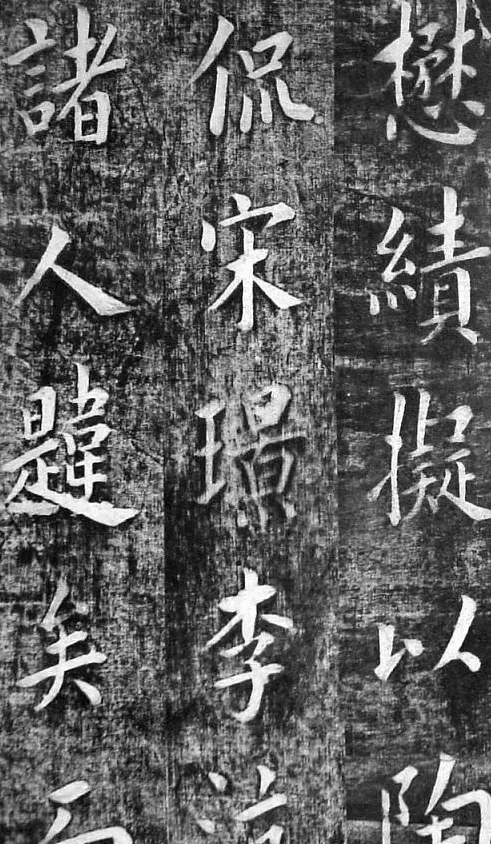 懋績擬以陶
侃宋璟李
諸人韙矣而